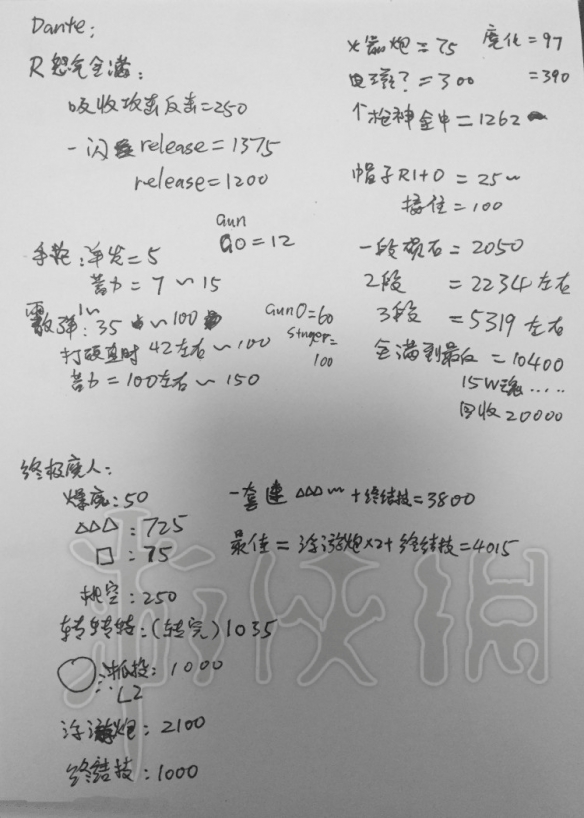 Dante:
R怒气全满:
吸收攻击反击=250
一闪 release=1375
release=1200
Gun
O=12
手枪:单发=5
蓄力=7~15
散弹:35~100
GunO=60
Stinger=
100
打硬直时42左右~100
蓄力=100左右~150
火箭炮=75 魔化=97
电磁?=300 =390
个枪神全中=1262
帽子R1+O=25~
接住=100
一段陨石=2050
2段 =2234左右
3段 =5319左右
全满到最后=10400
15W魂.....
回收20000
终极魔人:
爆魔:50
△△△:725
□:75
挑空:250
转转转:(转完)1035
○抓投:1000
L2
浮游炮:2100
终结技:1000
一套连△△△~+终结技=3800
最佳=浮游炮x2+终结技=4015
游侠网